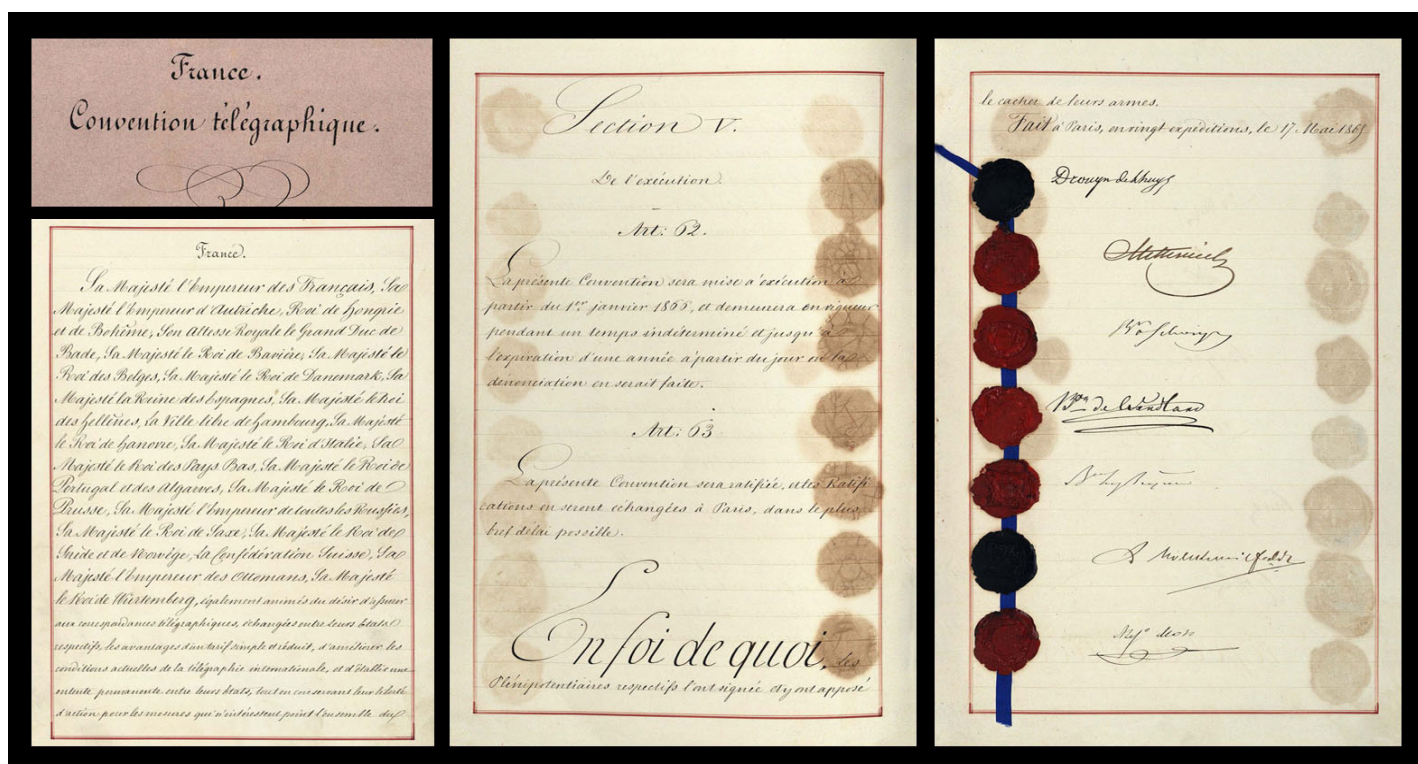 France.
Convention télégraphique.
France.
Sa Majesté l'Empereur des Français, Sa
Majesté l'Empereur d'Autriche, Roi de Hongrie
et de Bohême, Son Altesse Royale le Grand Duc de
Bade, Sa Majesté le Roi de Bavière, Sa Majesté le
Roi des Belges, Sa Majesté le Roi de Danemark, Sa
Majesté la Reine des Espagnes, Sa Majesté le Roi
des Hellènes, la Ville libre de Hambourg, Sa Majesté
le Roi de Hanovre, Sa Majesté le Roi d'Italie, Sa
Majesté le Roi des Pays Bas, Sa Majesté le Roi de
Portugal et des Algarves, Sa Majesté le Roi de
Prusse, Sa Majesté l'Empereur de toutes les Russies,
Sa Majesté le Roi de Saxe, Sa Majesté le Roi de
Suède et de Norwège, la Confédération Suisse, Sa
Majesté l'Empereur des Ottomans, Sa Majesté
le Roi de Würtemberg, également animés du désir d'assurer
aux correspondances télégraphiques, échangées entre leurs États
respectifs, les avantages d'un tarif simple et réduit, d'améliorer les
conditions actuelles de la télégraphie internationale, et d'établir une
entente permanente entre leurs états, tout en conservant leur liberté
d'action pour les mesures qui n'intéressent point l'ensemble du
Section V.
De l'exécution.
Art: 62.
La présente Convention sera mise à exécution à
partir du 1er janvier 1866, et demeurera en vigueur
pendant un temps indéterminé et jusqu'à
l'expiration d'une année à partir du jour où la
dénonciation en serait faite.
Art: 63
La présente Convention sera ratifiée, et les Ratifi
cations en seront échangées à Paris, dans le plus
bref délai possible.
En foi de quoi, les
Plénipotentiaires respectifs l'ont signée et y ont apposé
le cachet de leurs armes.
Fait à Paris, en vingt expéditions, le 17 Mai 1865
Drouyn de Lhuys
Metternich
Bon de Wendland